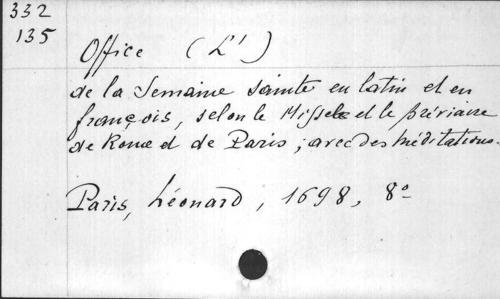 332
135
Office (L')
de la Semaine sainte en latin et en
françois, selon le Missel et le Bréviaire
de Rome et de Paris ; avec des Méditations.
Paris, Léonard, 1698, 8º